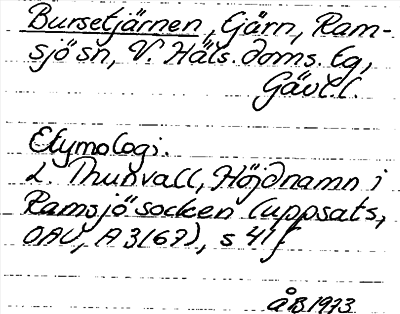 Bursetjärnen, tjärn, Ram-
sjö sn, V. Häls. doms. tg,
Gävl. l.
Etymologi.
L. Thunvall, Höjdnamn i
Ramsjö socken (uppsats,
OAU, A 3167), s 41 f
ÅB 1973